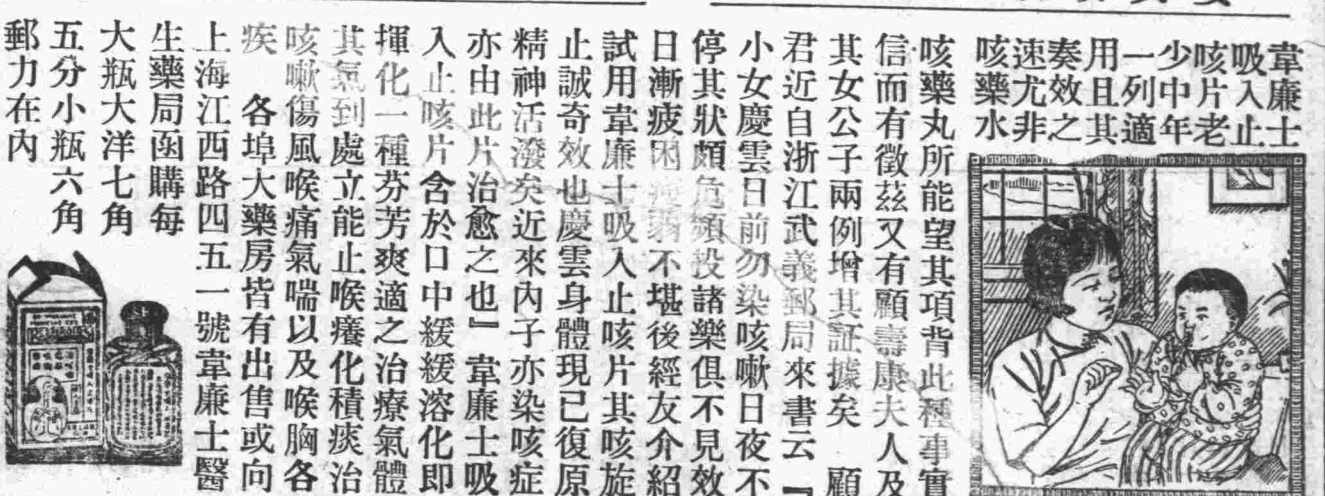 韋廉士
吸入止
咳片老
少中年
一列適
用且其
奏效之
速尤非
咳藥水
咳藥丸所能望其項背此種事實
信而有徵茲又有顧壽康夫人及
其女公子兩例增其証據矣　顧
君近自浙江武義郵局來書云『
小女慶雲日前勿染咳嗽日夜不
停其狀頗危頻投諸藥俱不見效
日漸疲困瘦弱不堪後經友介紹
試用韋廉士吸入止咳片其咳旋
止誠奇效也慶雲身體現已復原
精神活潑矣近來內子亦染咳症
亦由此片治愈之也』韋廉士吸
入止咳片含於口中緩緩溶化即
揮化一種芬芳爽適之治療氣體
其氣到處立能止喉癢化積痰治
咳嗽傷風喉痛氣喘以及喉胸各
疾　各埠大藥房皆有出售或向
上海江西路四五一號韋廉士醫
生藥局函購每
大瓶大洋七角
五分小瓶六角
郵力在內